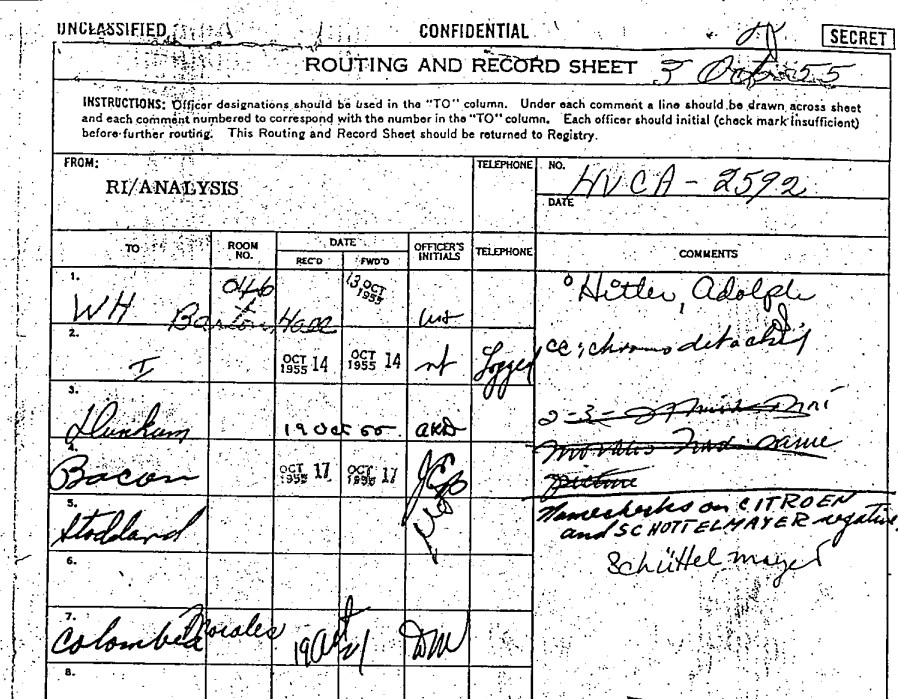 UNCLASSIFIED CONFIDENTIAL SECRET
ROUTING AND RECORD SHEET
INSTRUCTIONS: Officer designations should be used in the "TO" column. Under each comment a line should be drawn across sheet
and each comment numbered to correspond with the number in the "TO" column. Each officer should initial (check mark insufficient)
before further routing. This Routing and Record Sheet should be returned to Registry.
FROM:
RI/ANALYSIS
TELEPHONE
NO.
HVCA - 2592
DATE
TO
ROOM
NO.
DATE
REC'D
FWD'D
OFFICER'S
INITIALS
TELEPHONE
COMMENTS
1.
WH Barton Hall
046
13 OCT
1955
Hitler, Adolph
2.
I
OCT 14
1955
OCT 14
1955
nt
Logged
cc: chrono detached
3.
Dunham
19 Oct 55
AKD
4.
Bacon
OCT 17
1955
OCT 17
1955
name
picture
5.
Stoddard
Namechecks on CITROEN
and SCHOTTELMAYER negative
Schüttelmayer
6.
7.
Colombia Morales
19 Oct
DM
8.